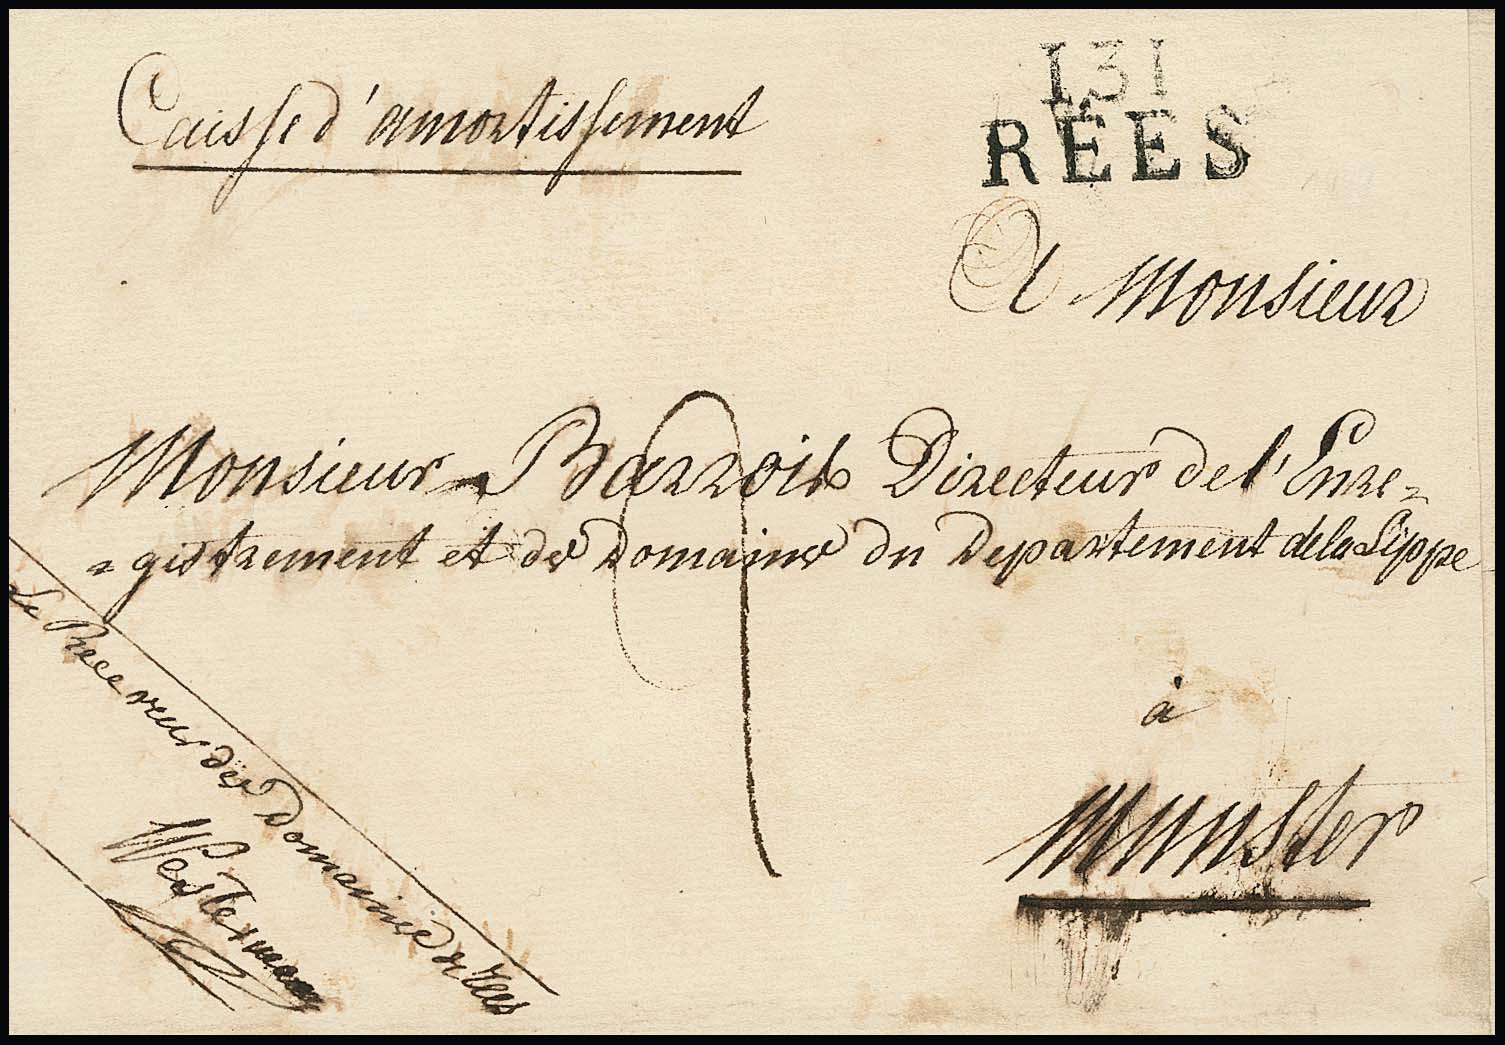 Caisse d'amortissement
131
RÉES
A Monsieur
Monsieur Barrois Directeur de l'Enre=
=gistrement et des Domaines du Departement de la Lippe
à
Munster
9
Le Receveur des Domaines à Rees
Westerman